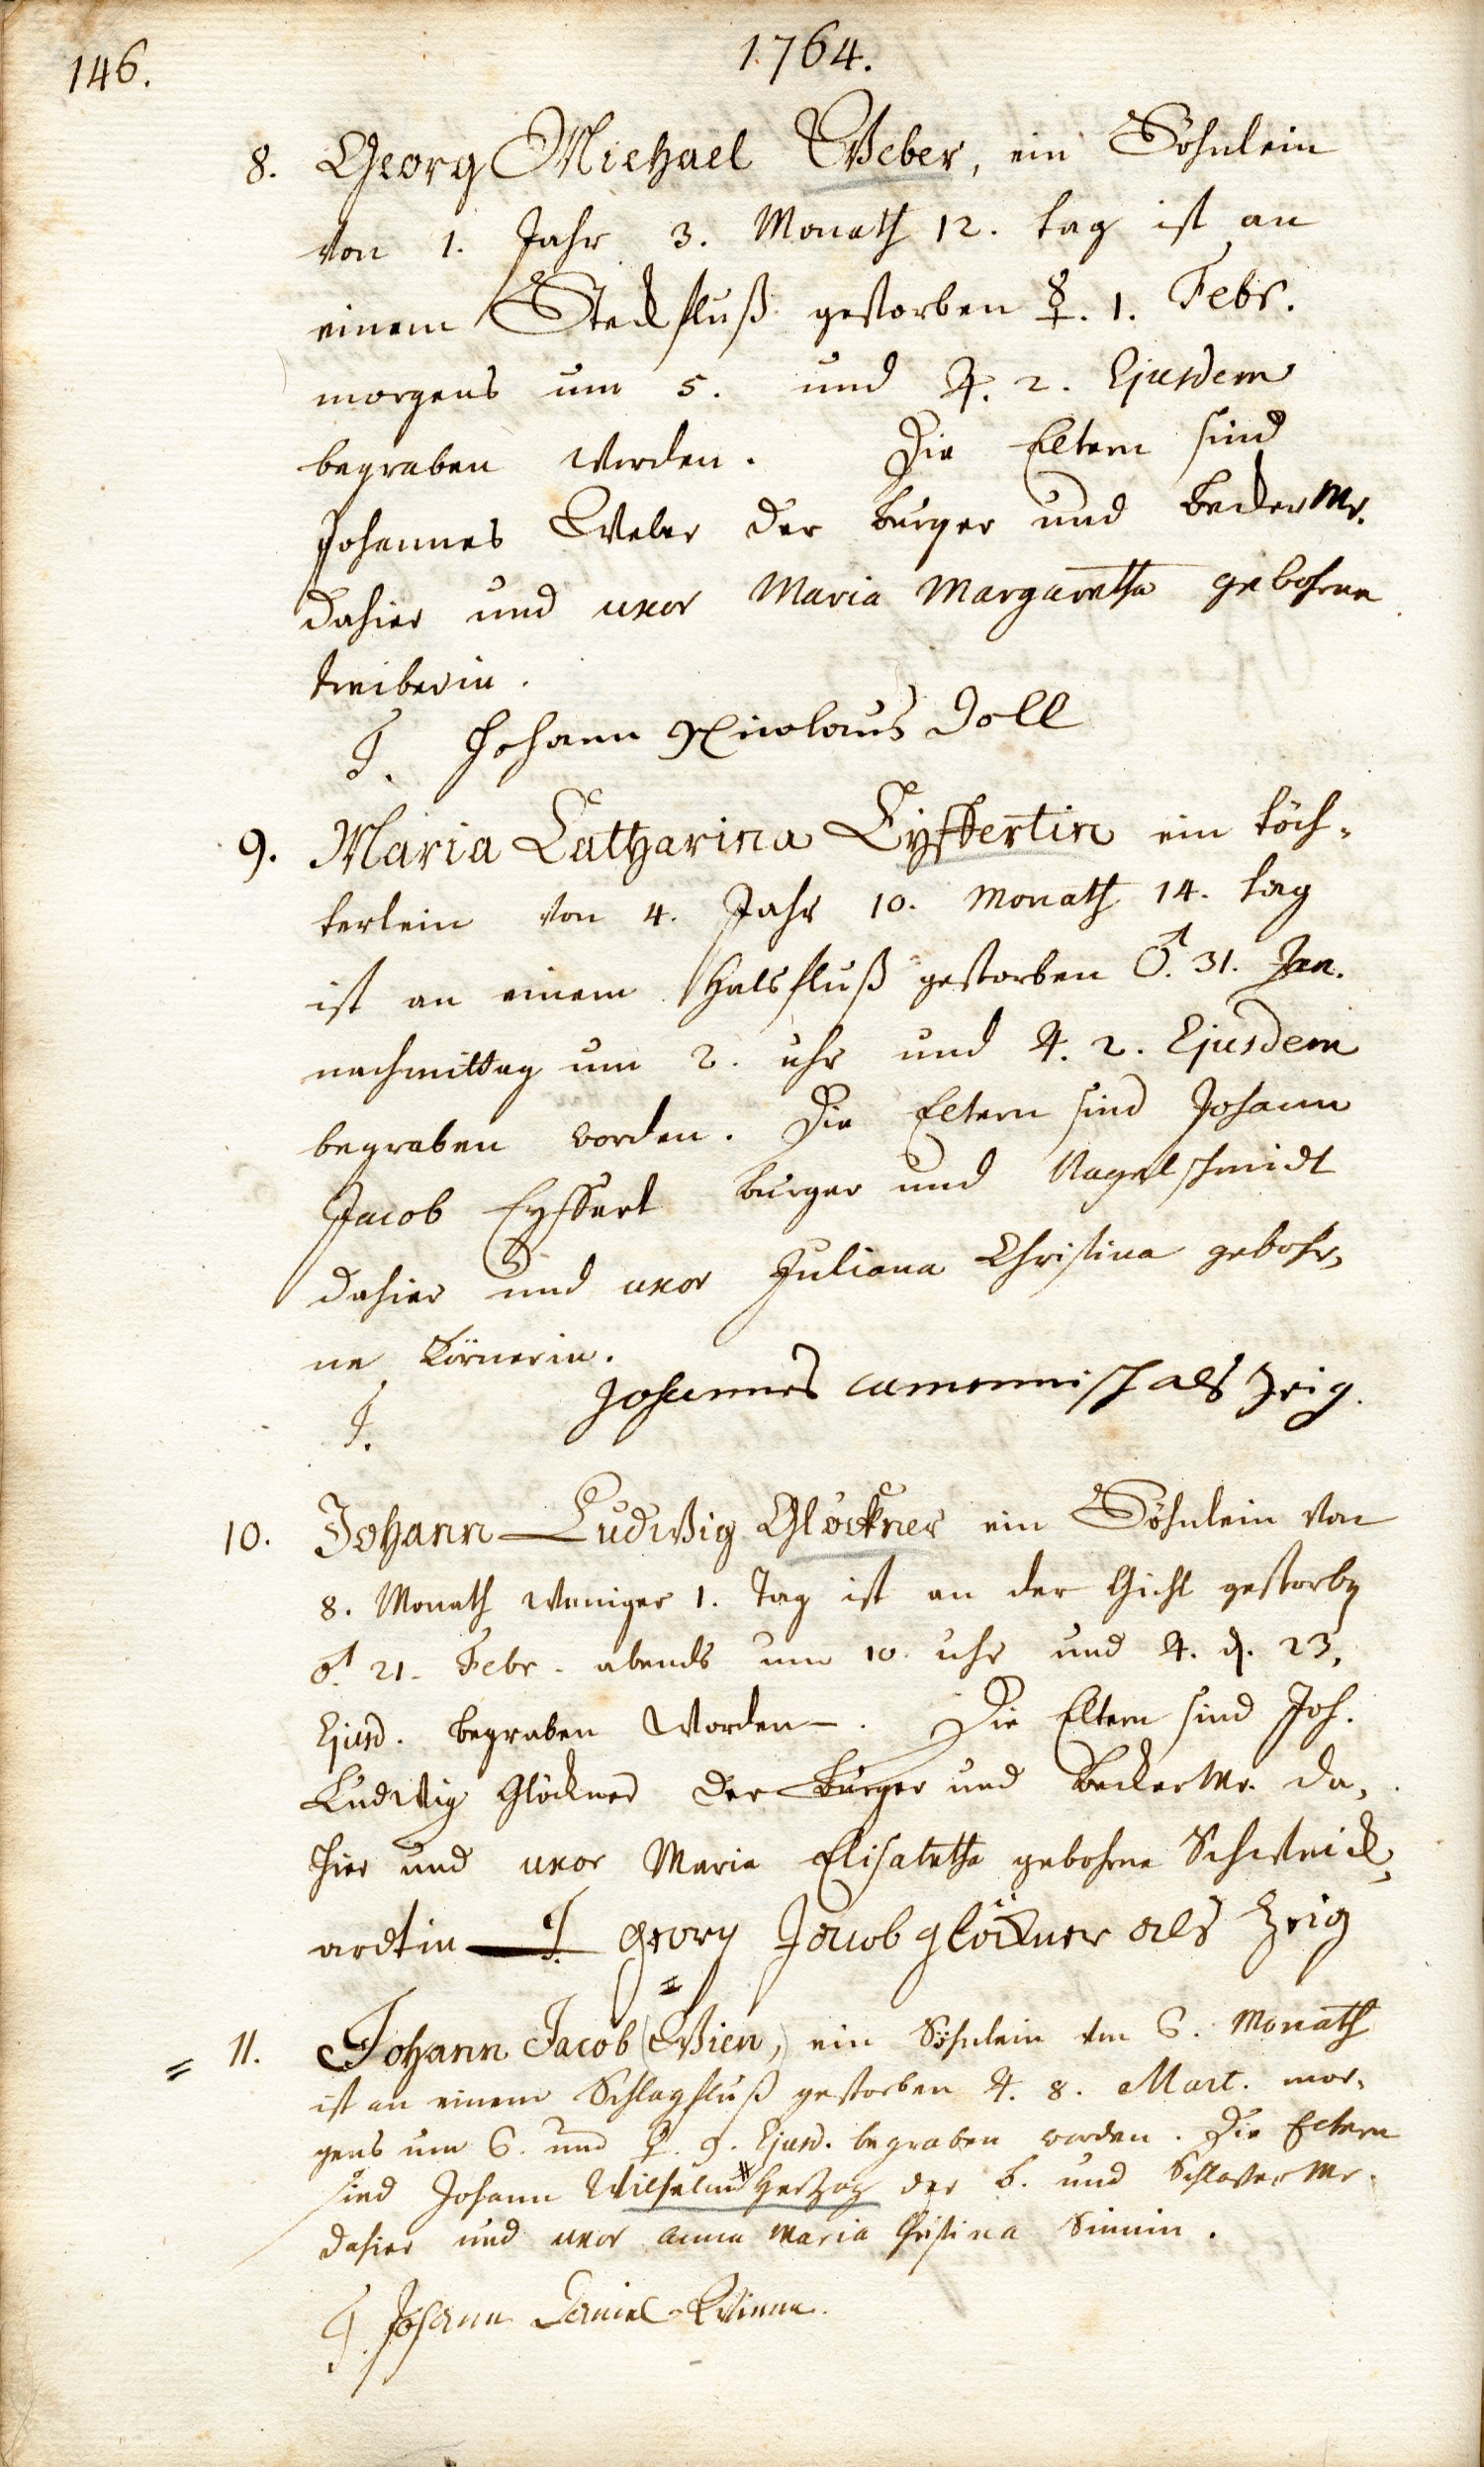 146.
1764.
8. Georg Michael Weber, ein Söhnlein
von 1. Jahr 3. Monath 12. tag ist an
einem Steckfluß gestorben ☿. 1. Febr.
morgens um 5. und ♃. 2. Ejusdem
begraben worden. Die Eltern sind
Johannes Weber der burger und becker Mr.
dahier und uxor Maria Margaretha gebohrne
Treiberin.
T. Johann Nicolaus Doll
9. Maria Catharina Eyffertin ein töch-
terlein von 4. Jahr 10. Monath 14. tag
ist an einem Halsfluß gestorben ♂. 31. Jan.
nachmittag um 2. uhr und ♃. 2. Ejusdem
begraben worden. Die Eltern sind Johann
Jacob Eyffert burger und Nagelschmidt
dahier und uxor Juliana Christina gebohr-
ne Körnerin.
T. Johannes als Zeig.
10. Johann Ludwig Glöckner ein Söhnlein von
8. Monath weniger 1. Tag ist an der Gicht gestorben
♂. 21. Febr. abends um 10. uhr und ♃. d. 23.
Ejusd. begraben worden. Die Eltern sind Joh.
Ludwig Glöckner der burger und becker Mr. da-
hier und uxor Maria Elisabetha gebohrne Schweick-
ardtin T. Georg Jacob glöckner als Zeig
= 11. Johann Jacob (Wien,) ein Söhnlein von 6. Monath
ist an einem Schlagfluß gestorben ♃. 8. Mart. mor-
gens um 6. und ♀. 9. Ejusd. begraben worden. Die Eltern
sind Johann Wilhelm # Herzog der b. und Schlosser Mr.
dahier und uxor Anna Maria Christina
T. Johann Daniel Wienn.